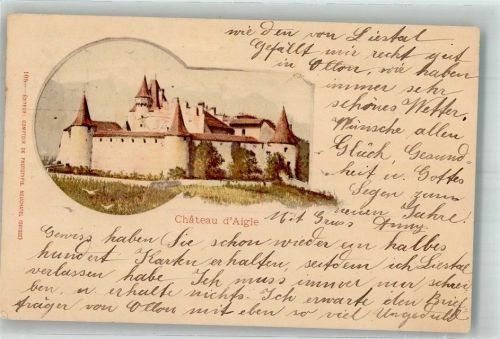 Gewiss haben Sie schon wieder ein halbes
hundert Karten erhalten, seitdem ich Liestal
verlassen habe. Ich muss immer nur schrei
ben, u. erhalte nichts. Ich erwarte den Brief-
träger von Ollon mit eben so viel Ungeduld
wie den von Liestal
Gefällt mir recht gut
in Ollon, wir haben
immer sehr
schönes Wetter.
Wünsche allen
Glück, Gesund-
heit u. Gottes
Segen zum
neuen Jahre!
Mit Gruss
Château d'Aigle
EDITEUR: COMPTOIR DE PHOTOTYPIE, NEUCHATEL (SUISSE)